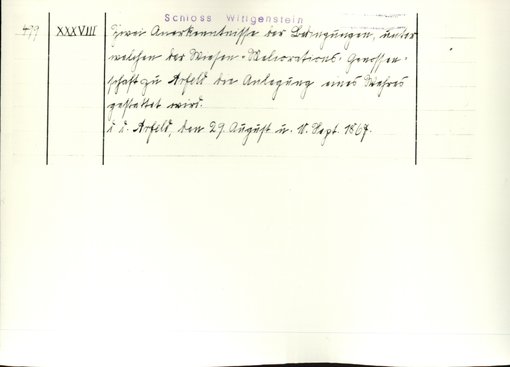 Schloss Wittgenstein
499 XXXVIII Zwei Anerkenntnisse der Bedingungen, unter
welchen der Wiesen-Meliorations-Genossen-
schaft zu Arfeld die Anlegung eines Wehres
gestattet wird.
d. d. Arfeld, den 29. August u. 11. Sept. 1867.